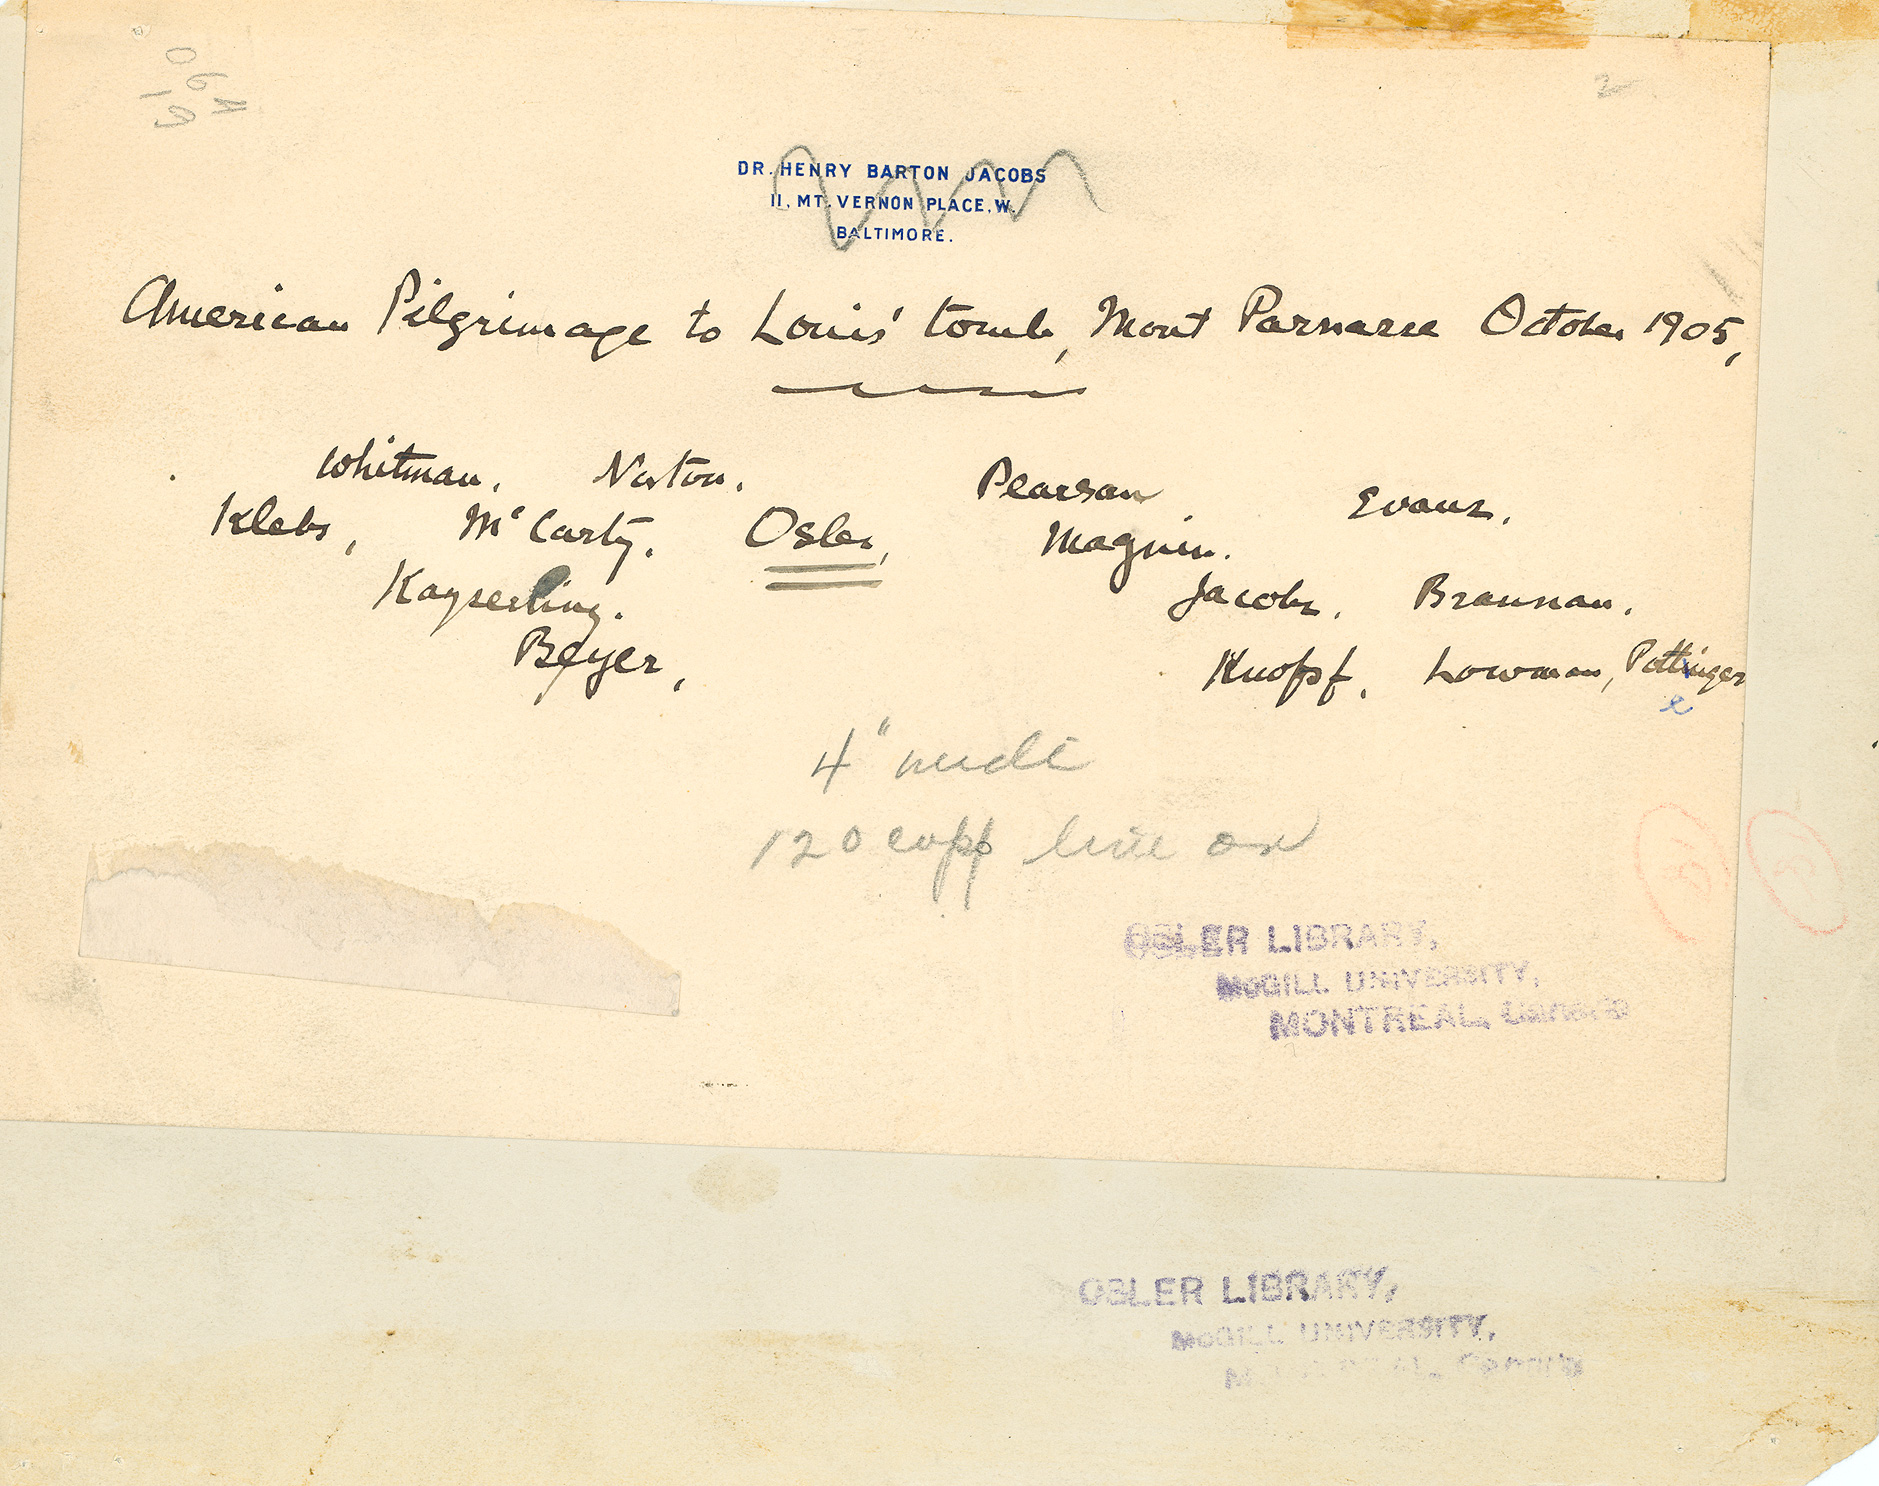 2
DR. HENRY BARTON JACOBS
11, MT. VERNON PLACE, W.
BALTIMORE.
American Pilgrimage to Louis' tomb, Mont Parnasse October 1905,
Whitman. Norton. Pearson Evans.
Klebs, McCarty. Osler, Magnin.
Kayserling. Jacobs. Brannan.
Beyer, Knopf. Lowman, Pottinger
e
4" wide
120 copp line on
OSLER LIBRARY,
McGILL UNIVERSITY,
MONTREAL, Canada
OSLER LIBRARY,
McGILL UNIVERSITY,
MONTREAL, Canada